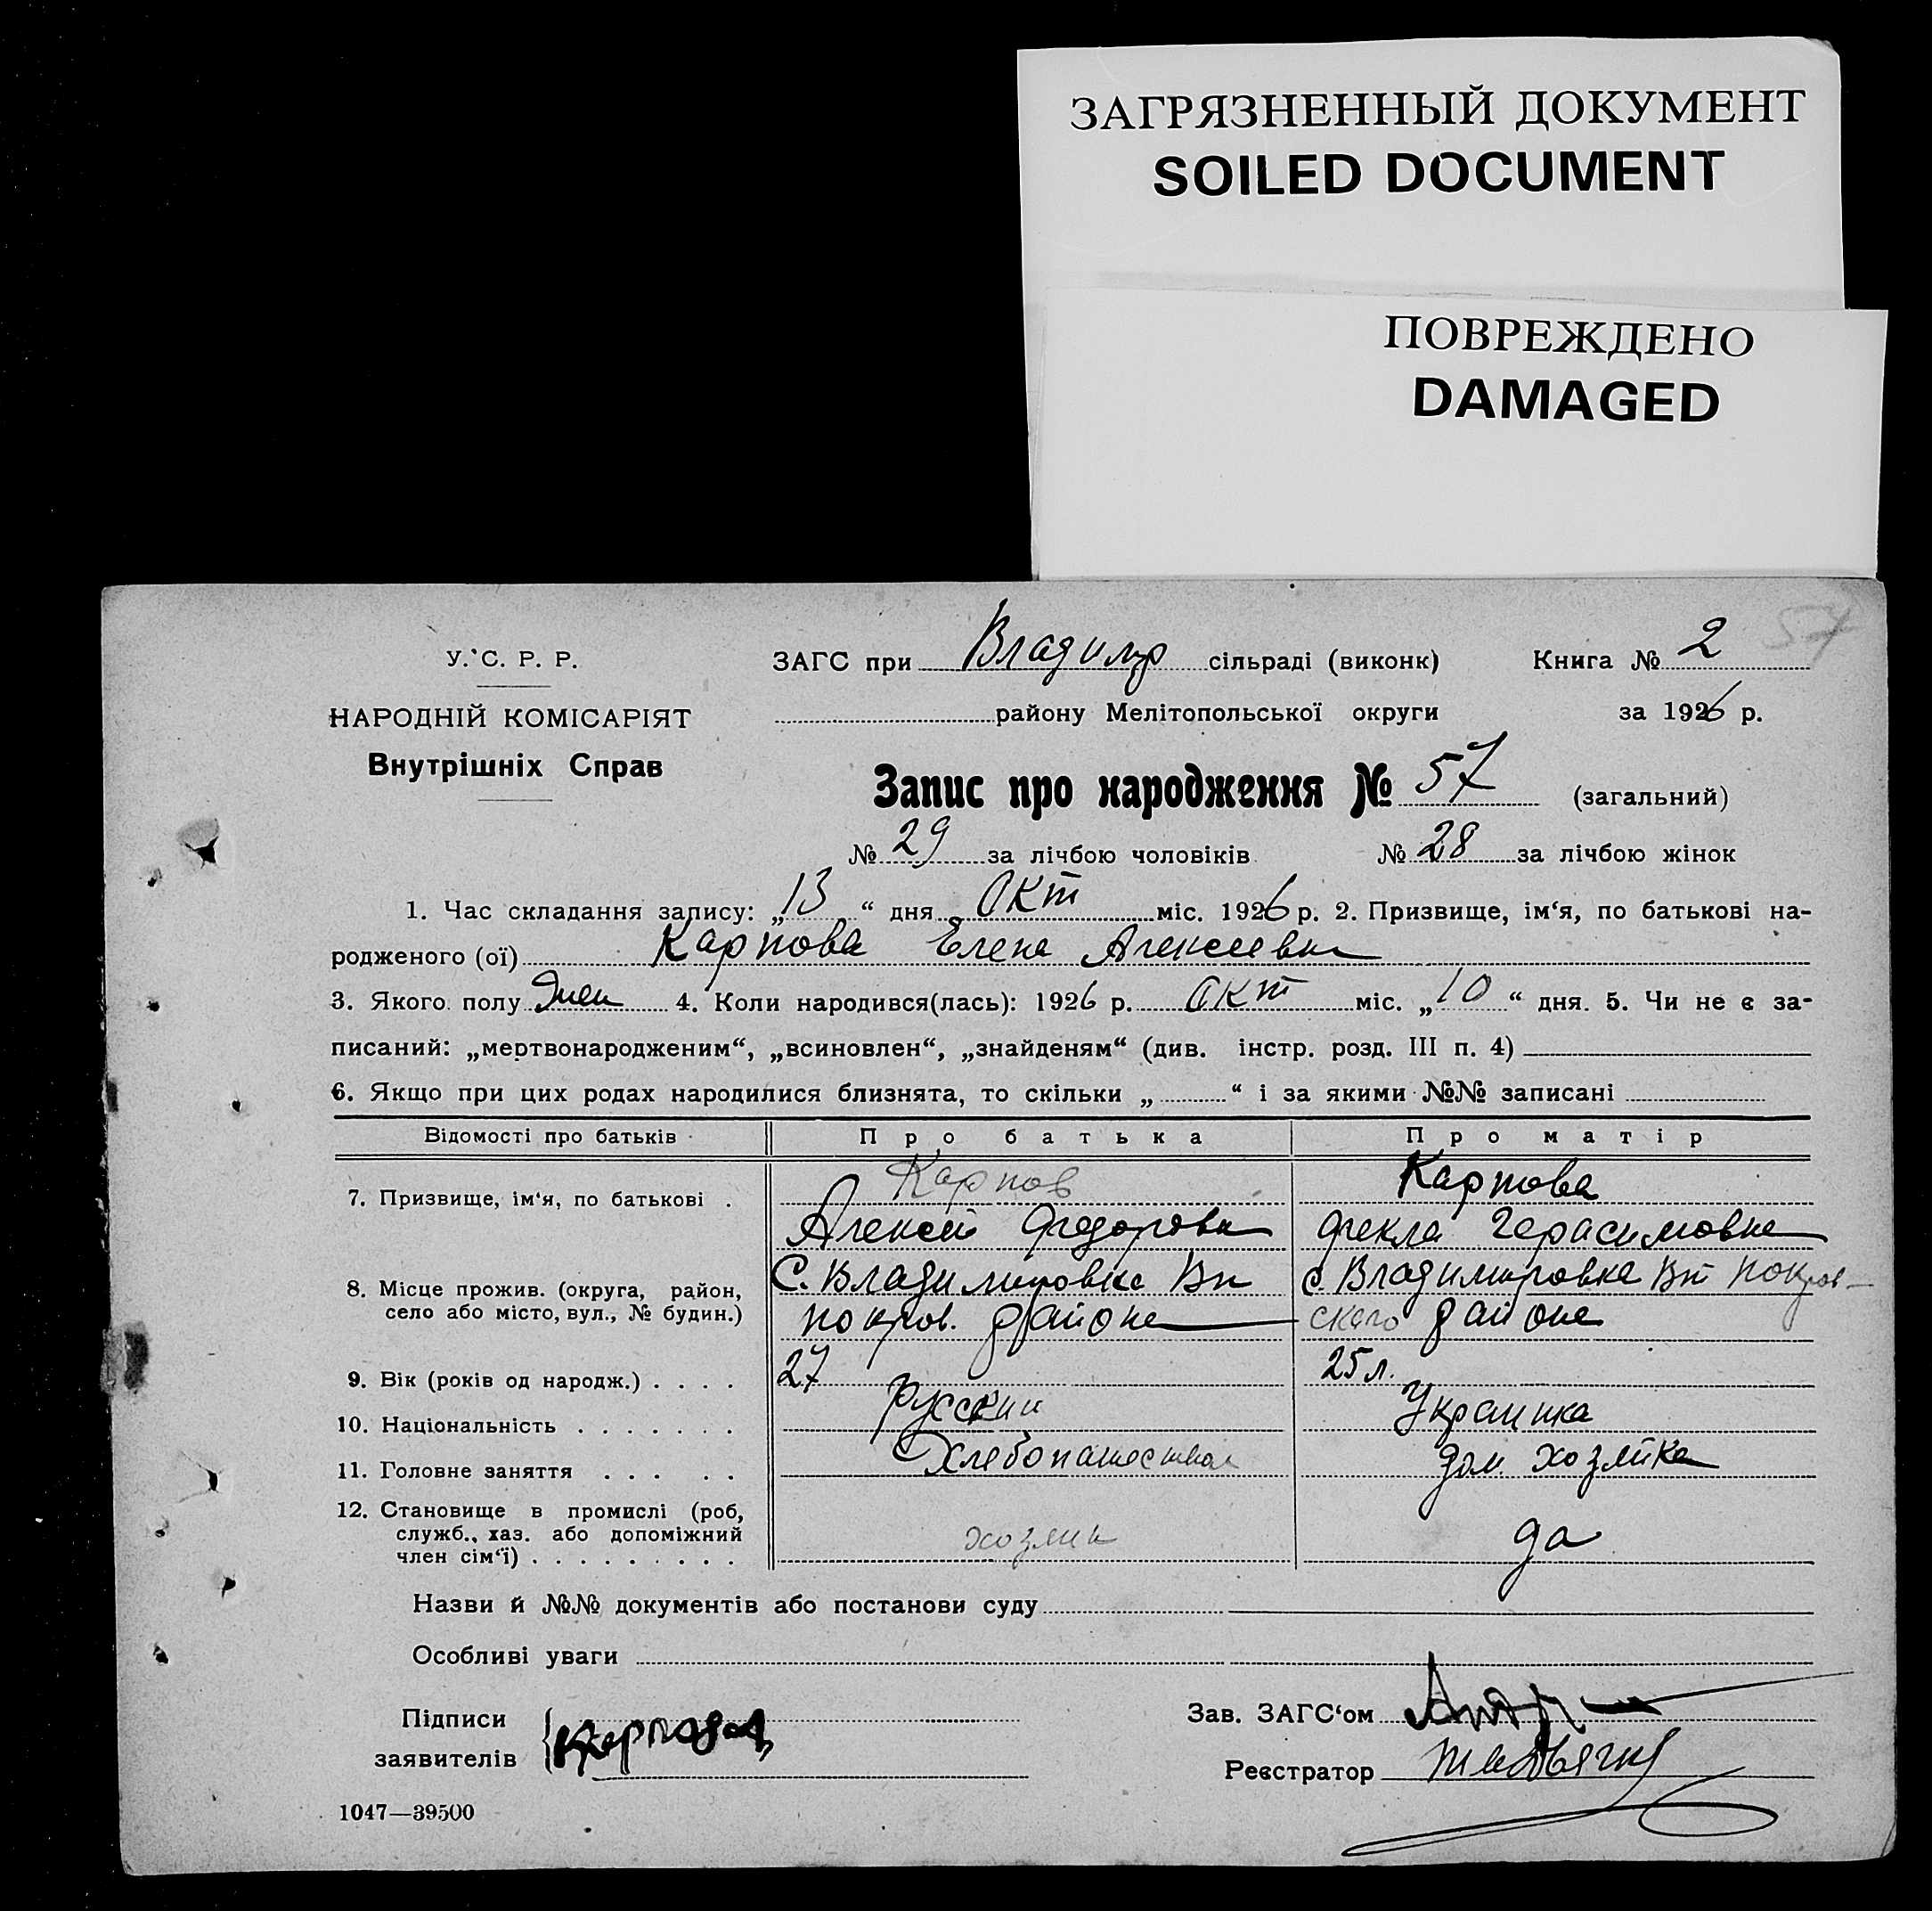 ЗАГРЯЗНЕННЫЙ ДОКУМЕНТ
SOILED DOCUMENT
ПОВРЕЖДЕНО
DAMAGED
57
У. С. Р. Р.
НАРОДНІЙ КОМІСАРІЯТ
Внутрішніх Справ
ЗАГС при Владимир сільраді (виконк) Книга № 2
району Мелітопольської округи за 1926 р.
Запис про народження № 57 (загальний)
№ 29 за лічбою чоловіків № 28 за лічбою жінок
1. Час складання запису: „13“ дня Окт міс. 1926 р. 2. Призвище, ім‘я, по батькові на-
родженого (ої) Карпова Елена Алексеевна
3. Якого полу Жен 4. Коли народився(лась): 1926 р. Окт міс. „10“ дня. 5. Чи не є за-
писаний: „мертвонародженим“, „всиновлен“, „знайденям“ (див. інстр. розд. III п. 4)
6. Якщо при цих родах народилися близнята, то скільки „ “ і за якими №№ записані
Відомості про батьків Про батька Про матір
7. Призвище, ім‘я, по батькові . Карпов Карпова
Алексей Федорович Фекла Герасимовна
8. Місце прожив. (округа, район, С. Владимировка Вт С. Владимировка Вт Покров-
село або місто, вул., № будин.) покров. района ского района
9. Вік (років од народж.) . . . . 27 25 л.
10. Національність . . . . . . . Русский Украинка
11. Головне заняття . . . . . Хлебопашество дом. хозяйка
12. Становище в промислі (роб,
служб., хаз. або допоміжний хозяин да
член сім‘ї) . . . . . . . . .
Назви й №№ документів або постанови суду
Особливі уваги
Підписи Зав. ЗАГС‘ом
заявителів Карпова Реєстратор
1047—39500